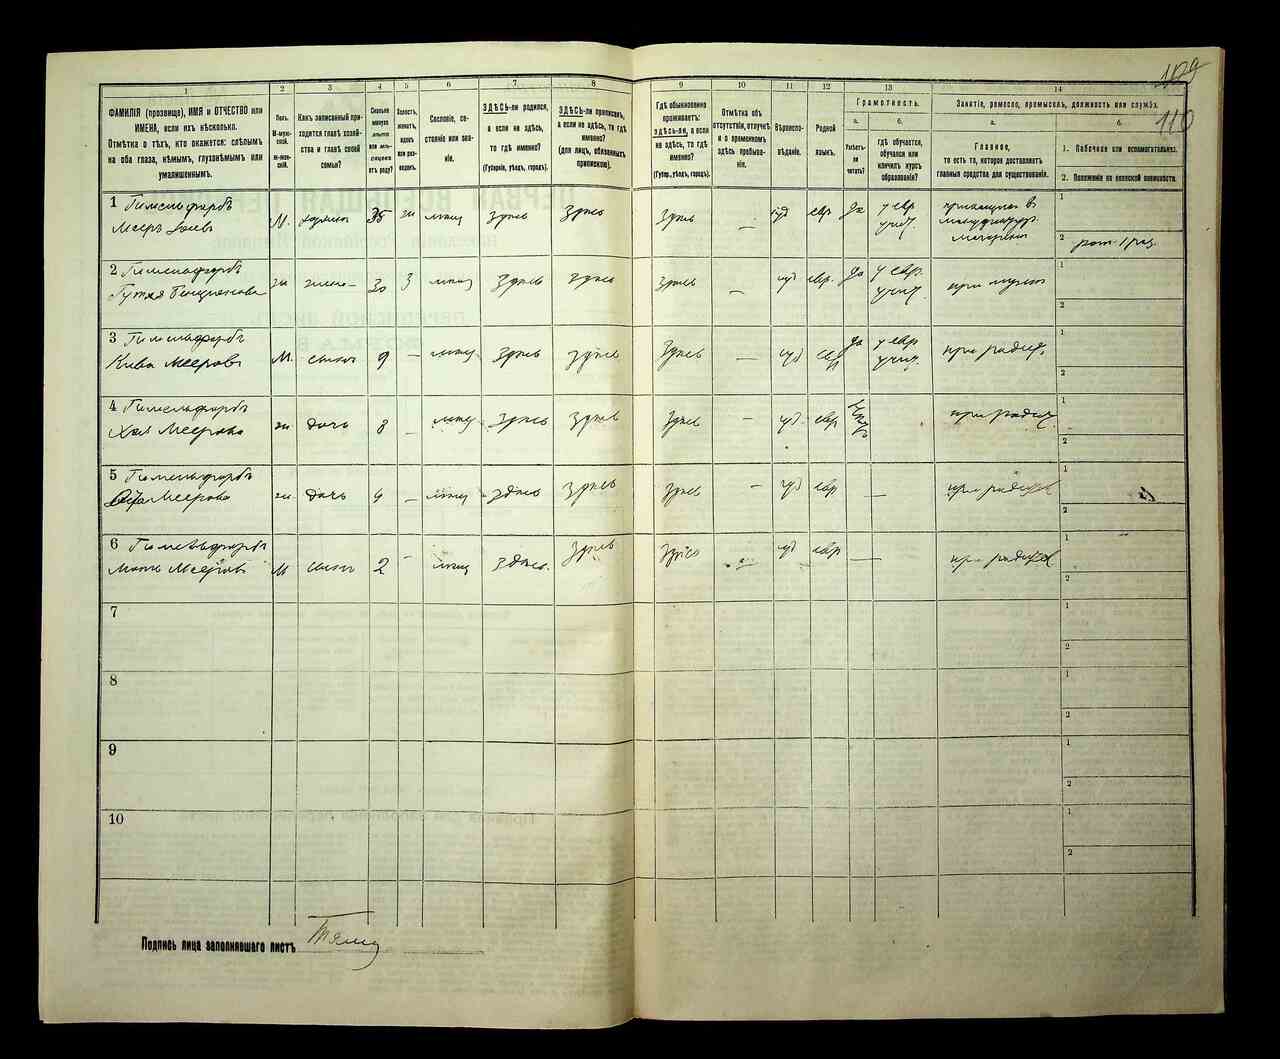 109
110
1
2
3
4
5
6
7
8
9
10
11
12
13
14
ФАМИЛІЯ (прозвище), ИМЯ и ОТЧЕСТВО или
ИМЕНА, если ихъ нѣсколько.
Отмѣтка о тѣхъ, кто окажется: слѣпымъ
на оба глаза, нѣмымъ, глухонѣмымъ или
умалишеннымъ.
Полъ.
М-муж-
ской.
Ж-жен-
скій.
Какъ записанный при-
ходится главѣ хозяй-
ства и главѣ своей
семьи?
Сколько
минуло
лѣтъ
или мѣ-
сяцевъ
отъ роду?
Холостъ,
женатъ,
вдовъ
или раз-
веденъ.
Сословіе, со-
стояніе или зва-
ніе.
ЗДѢСЬ-ли родился,
а если не здѣсь,
то гдѣ именно?
(Губернія, уѣздъ, городъ).
ЗДѢСЬ-ли приписанъ,
а если не здѣсь, то гдѣ
именно?
(для лицъ, обязанныхъ
припискою).
Гдѣ обыкновенно
проживаетъ:
здѣсь-ли, а если
не здѣсь, то гдѣ
именно?
(Губер., уѣздъ, городъ).
Отмѣтка объ
отсутствіи, отлучкѣ
и о временномъ
здѣсь пребыва-
ніи.
Вѣроиспо-
вѣданіе.
Родной
языкъ.
Грамотность.
а.
б.
Умѣетъ-
ли
читать?
гдѣ обучается,
обучался или
кончилъ курсъ
образованія?
Занятіе, ремесло, промыселъ, должность или служба.
а.
б.
Главное,
то есть то, которое доставляетъ
главныя средства для существованія.
1. Побочное или вспомогательное.
2. Положеніе по воинской повинности.
1 Гимельфарбъ
Мееръ
М. хозяинъ 35 ж мѣщ здѣсь здѣсь здѣсь — іуд евр да у евр
учит.
1
2
2 Гимельфарбъ
ж жена 30 з мѣщ здѣсь здѣсь здѣсь — іуд евр. да у евр.
учит.
при мужѣ
1
2
3 Гимельфарбъ
Кива Мееровъ
М. сынъ 9 — мѣщ здѣсь здѣсь здѣсь — іуд евр да у евр
учит.
при родит.
1
2
4 Гимельфарбъ
Хая Меерова
ж дочь 8 — мѣщ здѣсь здѣсь здѣсь — іуд евр
при родит.
1
2
5 Гимельфарбъ
Меерова
ж дочь — мѣщ здѣсь здѣсь здѣсь — іуд евр —
при родит
1
2
6 Гимельфарбъ
Мееровъ
М сынъ 2 — мѣщ здѣсь. здѣсь здѣсь — іуд евр —
при родит
1
2
7
1
2
8
1
2
9
1
2
10
1
2
Подпись лица заполнявшаго листъ